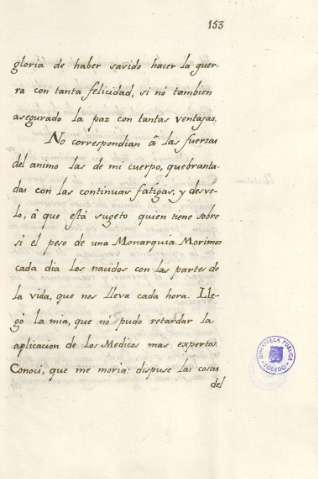 153
gloria de haber savido hacer la guer-
ra con tanta felicidad, si nó tambien
asegurado la paz con tantas ventajas.
No correspondian á las fuerzas
del animo las de mi cuerpo, quebranta-
das con las continuas fatigas, y desve-
lo, á que está sugeto quien tiene sobre
si el peso de una Monarquia. Morimos
cada dia los nacidos con las partes de
la vida, que nos lleva cada hora. Lle-
gó la mia, que nó pudo retardar la
aplicacion de los Medicos mas expertos.
Conocí, que me moria: dispuse las cosas
del
BIBLIOTECA PUBLICA
TOLEDO